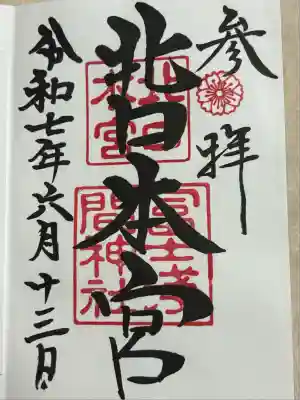 參拝
北口本宮
北口
本宮
冨士浅
間神社
令和七年六月十三日